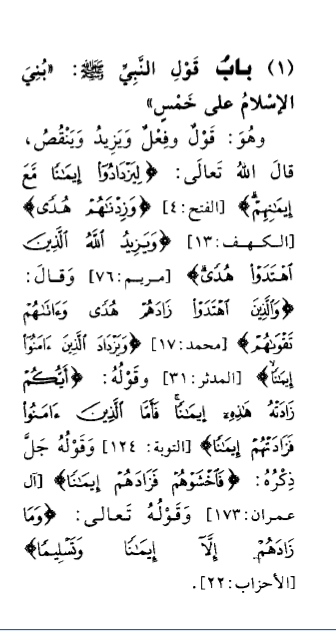 (١) بابُ قَوْلِ النَّبِيِّ ﷺ: «بُنِيَ
الإسْلامُ على خَمْسٍ»
وهُوَ: قَوْلٌ وفِعْلٌ وَيَزِيدُ وَيَنْقُصُ،
قالَ اللهُ تَعالَى: ﴿لِيَزْدَادُوٓا۟ إِيمَٰنًا مَّعَ
إِيمَٰنِهِمْۗ﴾ [الفتح:٤] ﴿وَزِدْنَٰهُمْ هُدًى﴾
[الكهف:١٣] ﴿وَيَزِيدُ ٱللَّهُ ٱلَّذِينَ
ٱهْتَدَوْا۟ هُدًىۗ﴾ [مريم:٧٦] وَقالَ:
﴿وَٱلَّذِينَ ٱهْتَدَوْا۟ زَادَهُمْ هُدًى وَءَاتَىٰهُمْ
تَقْوَىٰهُمْ﴾ [محمد:١٧] ﴿وَيَزْدَادَ ٱلَّذِينَ ءَامَنُوٓا۟
إِيمَٰنًاۙ﴾ [المدثر:٣١] وقَوْلُهُ: ﴿أَيُّكُمْ
زَادَتْهُ هَٰذِهِۦٓ إِيمَٰنًاۚ فَأَمَّا ٱلَّذِينَ ءَامَنُوا۟
فَزَادَتْهُمْ إِيمَٰنًا﴾ [التوبة: ١٢٤] وَقَوْلُهُ جَلَّ
ذِكْرُهُ: ﴿فَٱخْشَوْهُمْ فَزَادَهُمْ إِيمَٰنًا﴾ [آل
عمران:١٧٣] وَقَوْلُهُ تَعالى: ﴿وَمَا
زَادَهُمْ إِلَّآ إِيمَٰنًا وَتَسْلِيمًا﴾
[الأحزاب:٢٢].